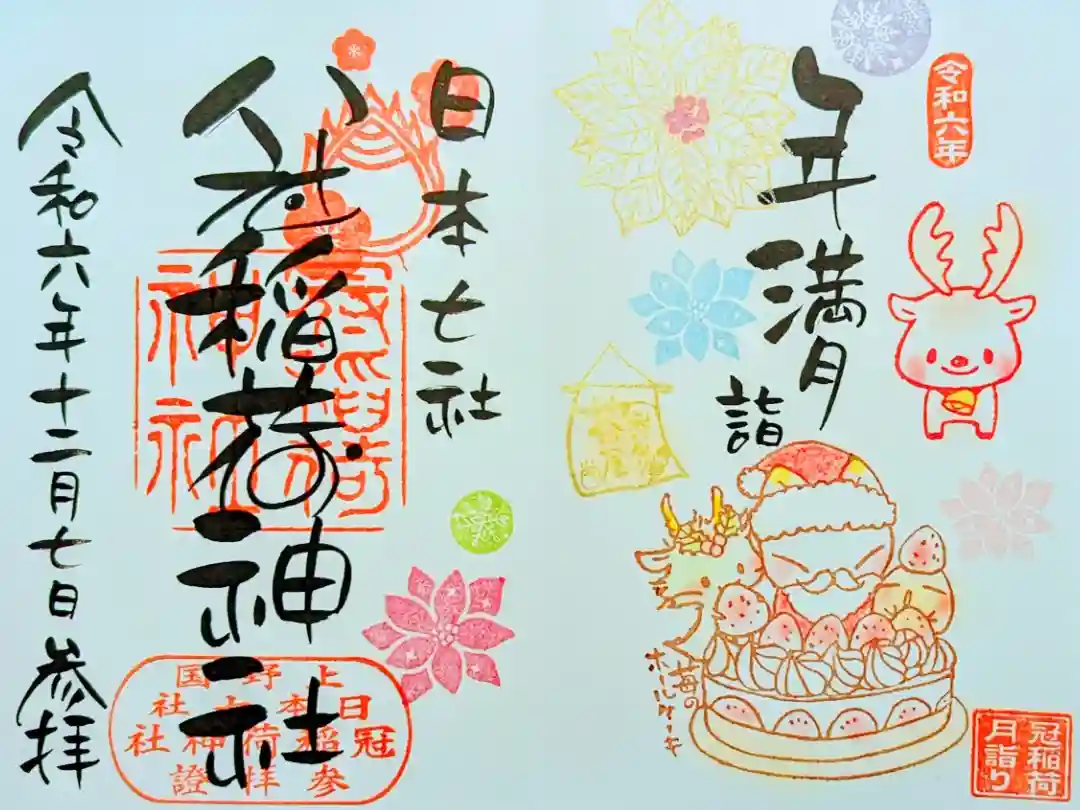 令和六年
年満月
詣
苺の
ホールケーキ
冠稲荷
月詣り
日本七社
冠稲荷神社
令和六年十二月七日参拝
上野国
日本七社
冠稲荷神社
参拝證